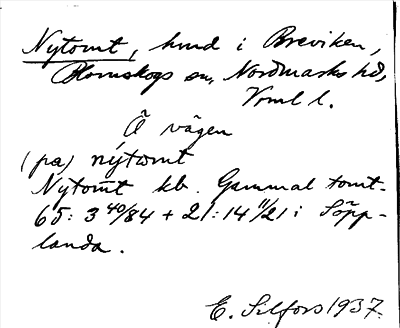 Nytomt, hmd i Breviken,
Blomskogs sn, Nordmarks hd,
Vrml l.
Å vägen
(pa) nýtomt
Nytomt kb. Gammal tomt-
65: 3 40/84 + 21:14 11/21 i Söpp-
landa.
E. Selfors 1937.